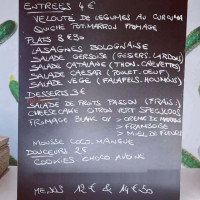 ENTREES 4€
VELOUTE DE LEGUMES AU CURCUMA
QUICHE POTIMARRON FROMAGE
PLATS 8€50
LASAGNES BOLOGNAISE
SALADE GERSOISE (GESIERS. LARDONS)
SALADE CATALANE (THON. CREVETTES)
SALADE CAESAR (POULET. OEUF)
SALADE VEGE (FALAFELS. HOUMOUS)
DESSERTS 3€
SALADE DE FRUITS PASSION (FRAIS.)
CHEESECAKE CITRON VERT SPECULOOS
FROMAGE BLANC OU > CREME DE MARRON
> FRAMBOISE
> MIEL DE FLEURS
MOUSSE COCO. MANGUE
DOUCEURS 2€
COOKIES CHOCO AVOINE
MENUS 12€ & 14€50